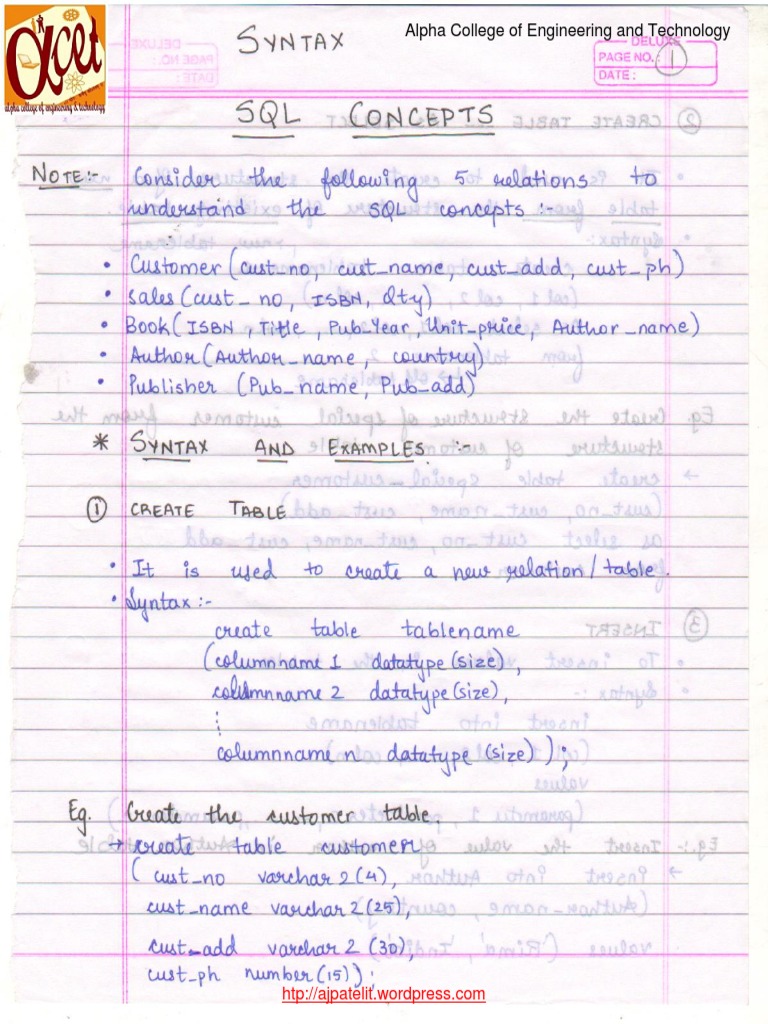 Alpha College of Engineering and Technology
acet
alpha college of engineering & technology
SYNTAX
DELUXE
PAGE NO. : 1
DATE :
SQL CONCEPTS
NOTE:- Consider the following 5 relations to
understand the SQL concepts :-
• Customer (cust_no, cust_name, cust_add, cust_ph)
• Sales (cust_no, ISBN, Qty)
• Book (ISBN, Title, Pub_Year, Unit_price, Author_name)
• Author (Author_name, country)
• Publisher (Pub_name, Pub_add)
* SYNTAX AND EXAMPLES :-
① CREATE TABLE
• It is used to create a new relation / table.
• Syntax :-
create table tablename
(columnname 1 datatype (size),
columnname 2 datatype (size),
⋮
columnname n datatype (size) );
Eg. Create the customer table.
→ create table customer
( cust_no varchar2(4),
cust_name varchar2(25),
cust_add varchar2 (30),
cust_ph number(15));
http://ajpatelit.wordpress.com